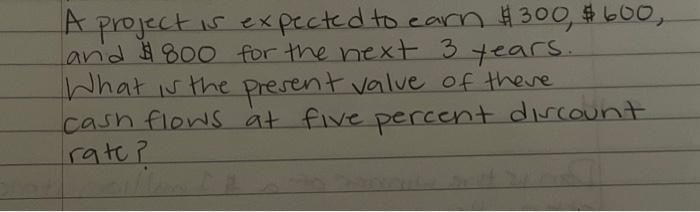 A project is expected to earn $300, $600,
and $800 for the next 3 years.
What is the present value of there
cash flows at five percent discount
rate?